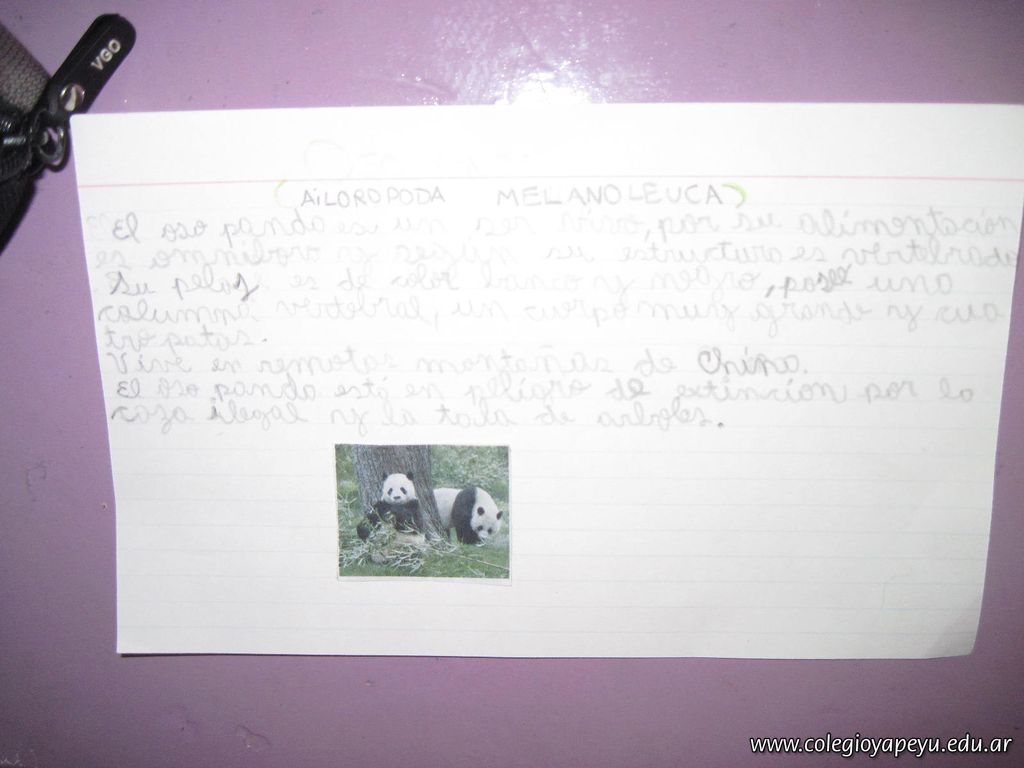 VGO
(AiLOROPODA MELANOLEUCA)
El oso panda es un ser vivo, por su alimentación
es omniboro y según su estructura es vertebrado
Su pelaj es de color blanco y negro, posee una
columna vertebral, un cuerpo muy grande y cua
tro patas.
Vive en remotas montañas de China.
El Oso panda está en peligro de extincion por la
caza ilegal y la tala de arboles.
www.colegioyapeyu.edu.ar